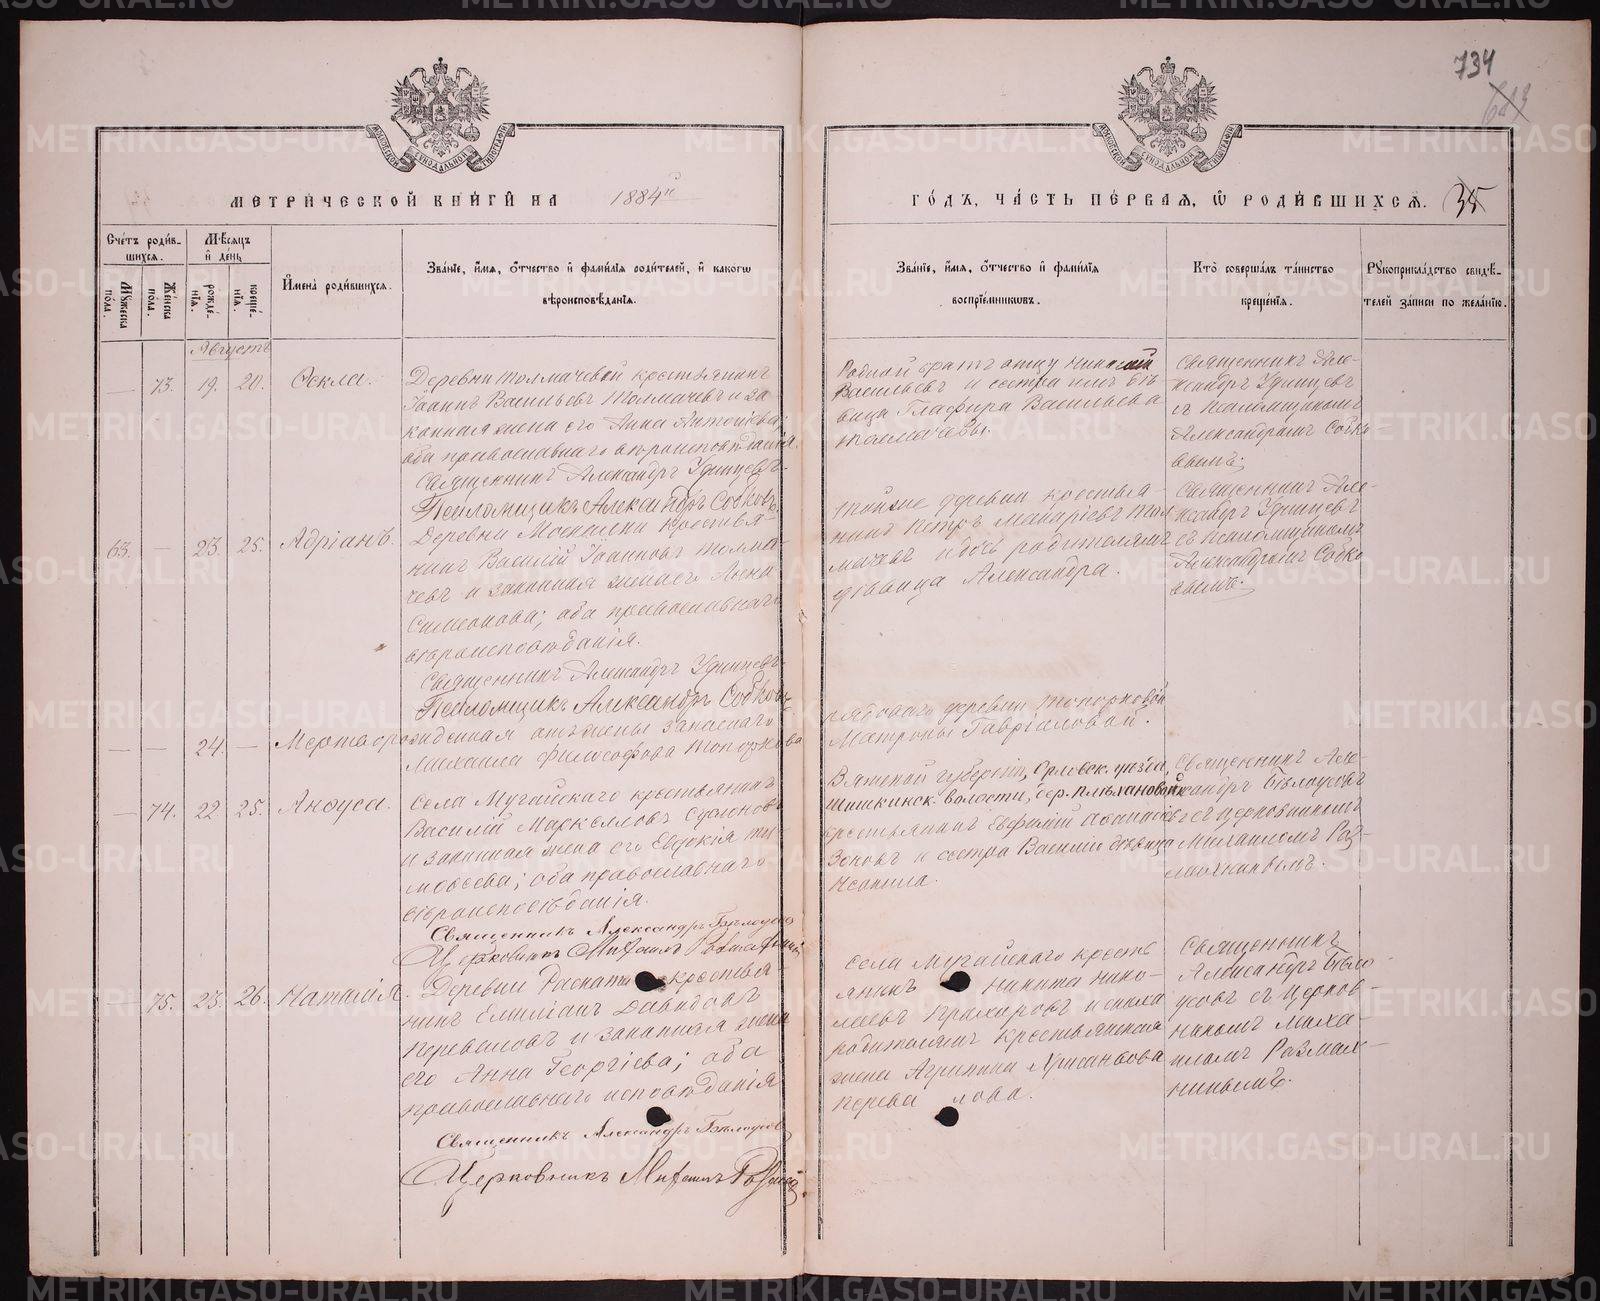 734
МЕТРИЧЕСКОЙ КНИГИ НА 1884й
ГОДЪ, ЧАСТЬ ПЕРВАЯ, Ѡ РОДИВШИХСЯ. 35
Счетъ родив-
шихся.
Мѣсяцъ
и день
Имена родившихся.
Званіе, имя, отчество и фамилія родителей, и какого
вѣроисповѣданія.
Званіе, имя, отчество и фамилія
воспріемниковъ.
Кто совершалъ таинство
крещенія.
Рукоприкладство свидѣ-
телей записи по желанію.
Мужеска
пола.
Женска
пола.
рожде-
нія.
креще-
нія.
Августъ
— 73. 19. 20. Ѳекла.
Деревни Толмачевой крестьянинъ
Іоаннъ Васильевъ Толмачевъ и за
конная жена его Анна Антоніева;
оба православнаго вѣроисповѣданія.
Священникъ Александръ Удинцевъ.
Псаломщикъ Александръ Собковъ
Родной братъ отцу Николай
Васильевъ и сестра имъ дѣ
вица Глафира Васильева
Толмачевы.
Священникъ Але-
ксандръ Удинцевъ
съ Псаломщикомъ
Александромъ Собко
вымъ.
63. — 23. 25. Адріанъ.
Деревни крестья-
нинъ Василій Іоанновъ Толма-
чевъ и законная жена его Анна
Симеонова; оба православнаго
вѣроисповѣданія.
Священникъ Александръ Удинцевъ.
Псаломщикъ Александръ Собковъ
деревни крестья-
нинъ Петръ Макаріевъ Тол
мачевъ и дочь родителямъ
дѣвица Александра.
Священникъ Але-
ксандръ Удинцевъ
съ Псаломщикомъ
Александромъ Собко
вымъ.
— — 24. — Мертворожденная отъ жены запаснаго
Михаила Философова Топоркова
рядоваго деревни Топорковой
Матроны Гавріиловой.
— 74. 22 25. Анѳуса.
Села Мугайскаго крестьянинъ
Василій Маркелловъ
и законная жена его Евдокія
Моѵсеева; оба православнаго
вѣроисповѣданія.
Священникъ Александръ Бѣлоусовъ
Церковникъ Михаилъ
Вятской губерніи, Орловск. уѣзда,
Шишкинск. волости, дер. Плѣхановой
крестьянинъ Евфимій
Зоновъ и сестра Василія дѣвица
Священникъ Але-
ксандръ Бѣлоусовъ
съ Церковникомъ
Михаиломъ Раз-
махнинымъ.
— 75. 23. 26. Наталія.
Деревни крестья-
нинъ Емиліанъ Давидовъ
Переваловъ и законная жена
его Анна Георгіева; оба
православнаго исповѣданія
Священникъ Александръ Бѣлоусовъ
Церковникъ Михаилъ
Села Мугайскаго кресть
янинъ Никита Нико-
лаевъ и
родителямъ крестьянская
жена Агрипина Хрисанѳова
Перева лова.
Священникъ
Александръ Бѣло-
усовъ съ Церков-
никомъ Миха-
иломъ Размах-
нинымъ.
METRIKI.GASO-URAL.RU